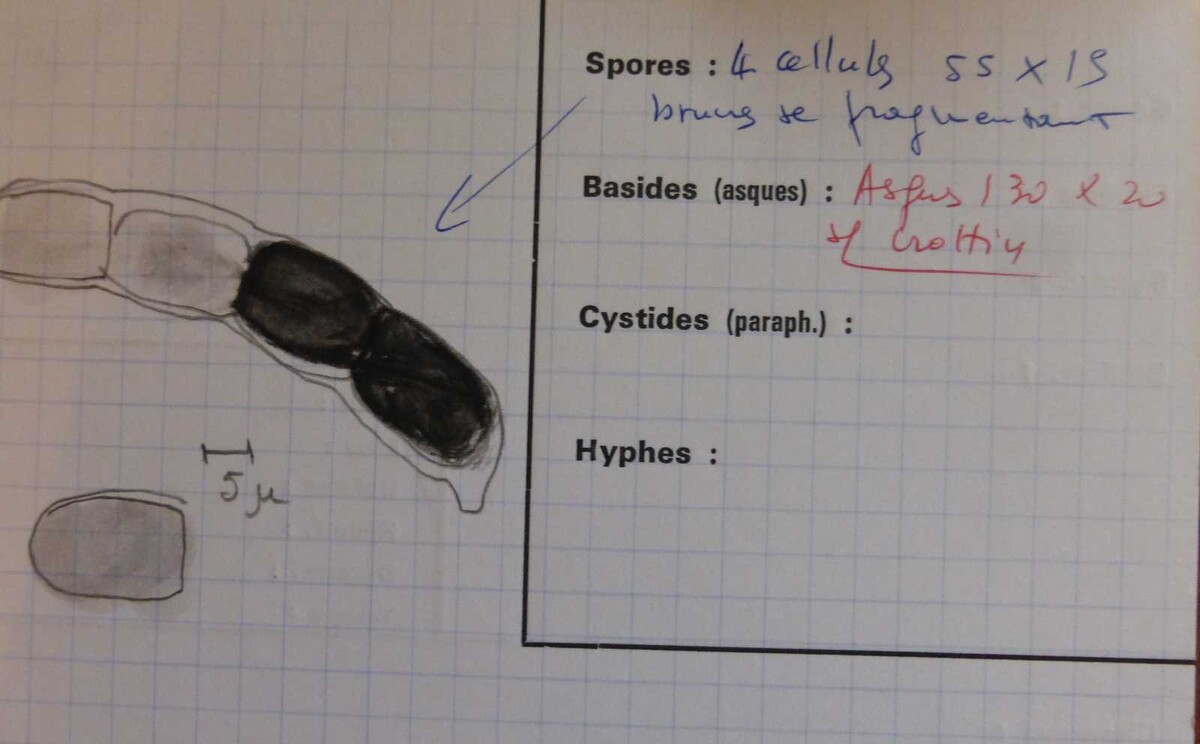 Spores : 4 cellules 55 x 15
brunes se fragmentant
Basides (asques) : Asques 130 x 20
Crottin
Cystides (paraph.) :
Hyphes :
5 µ